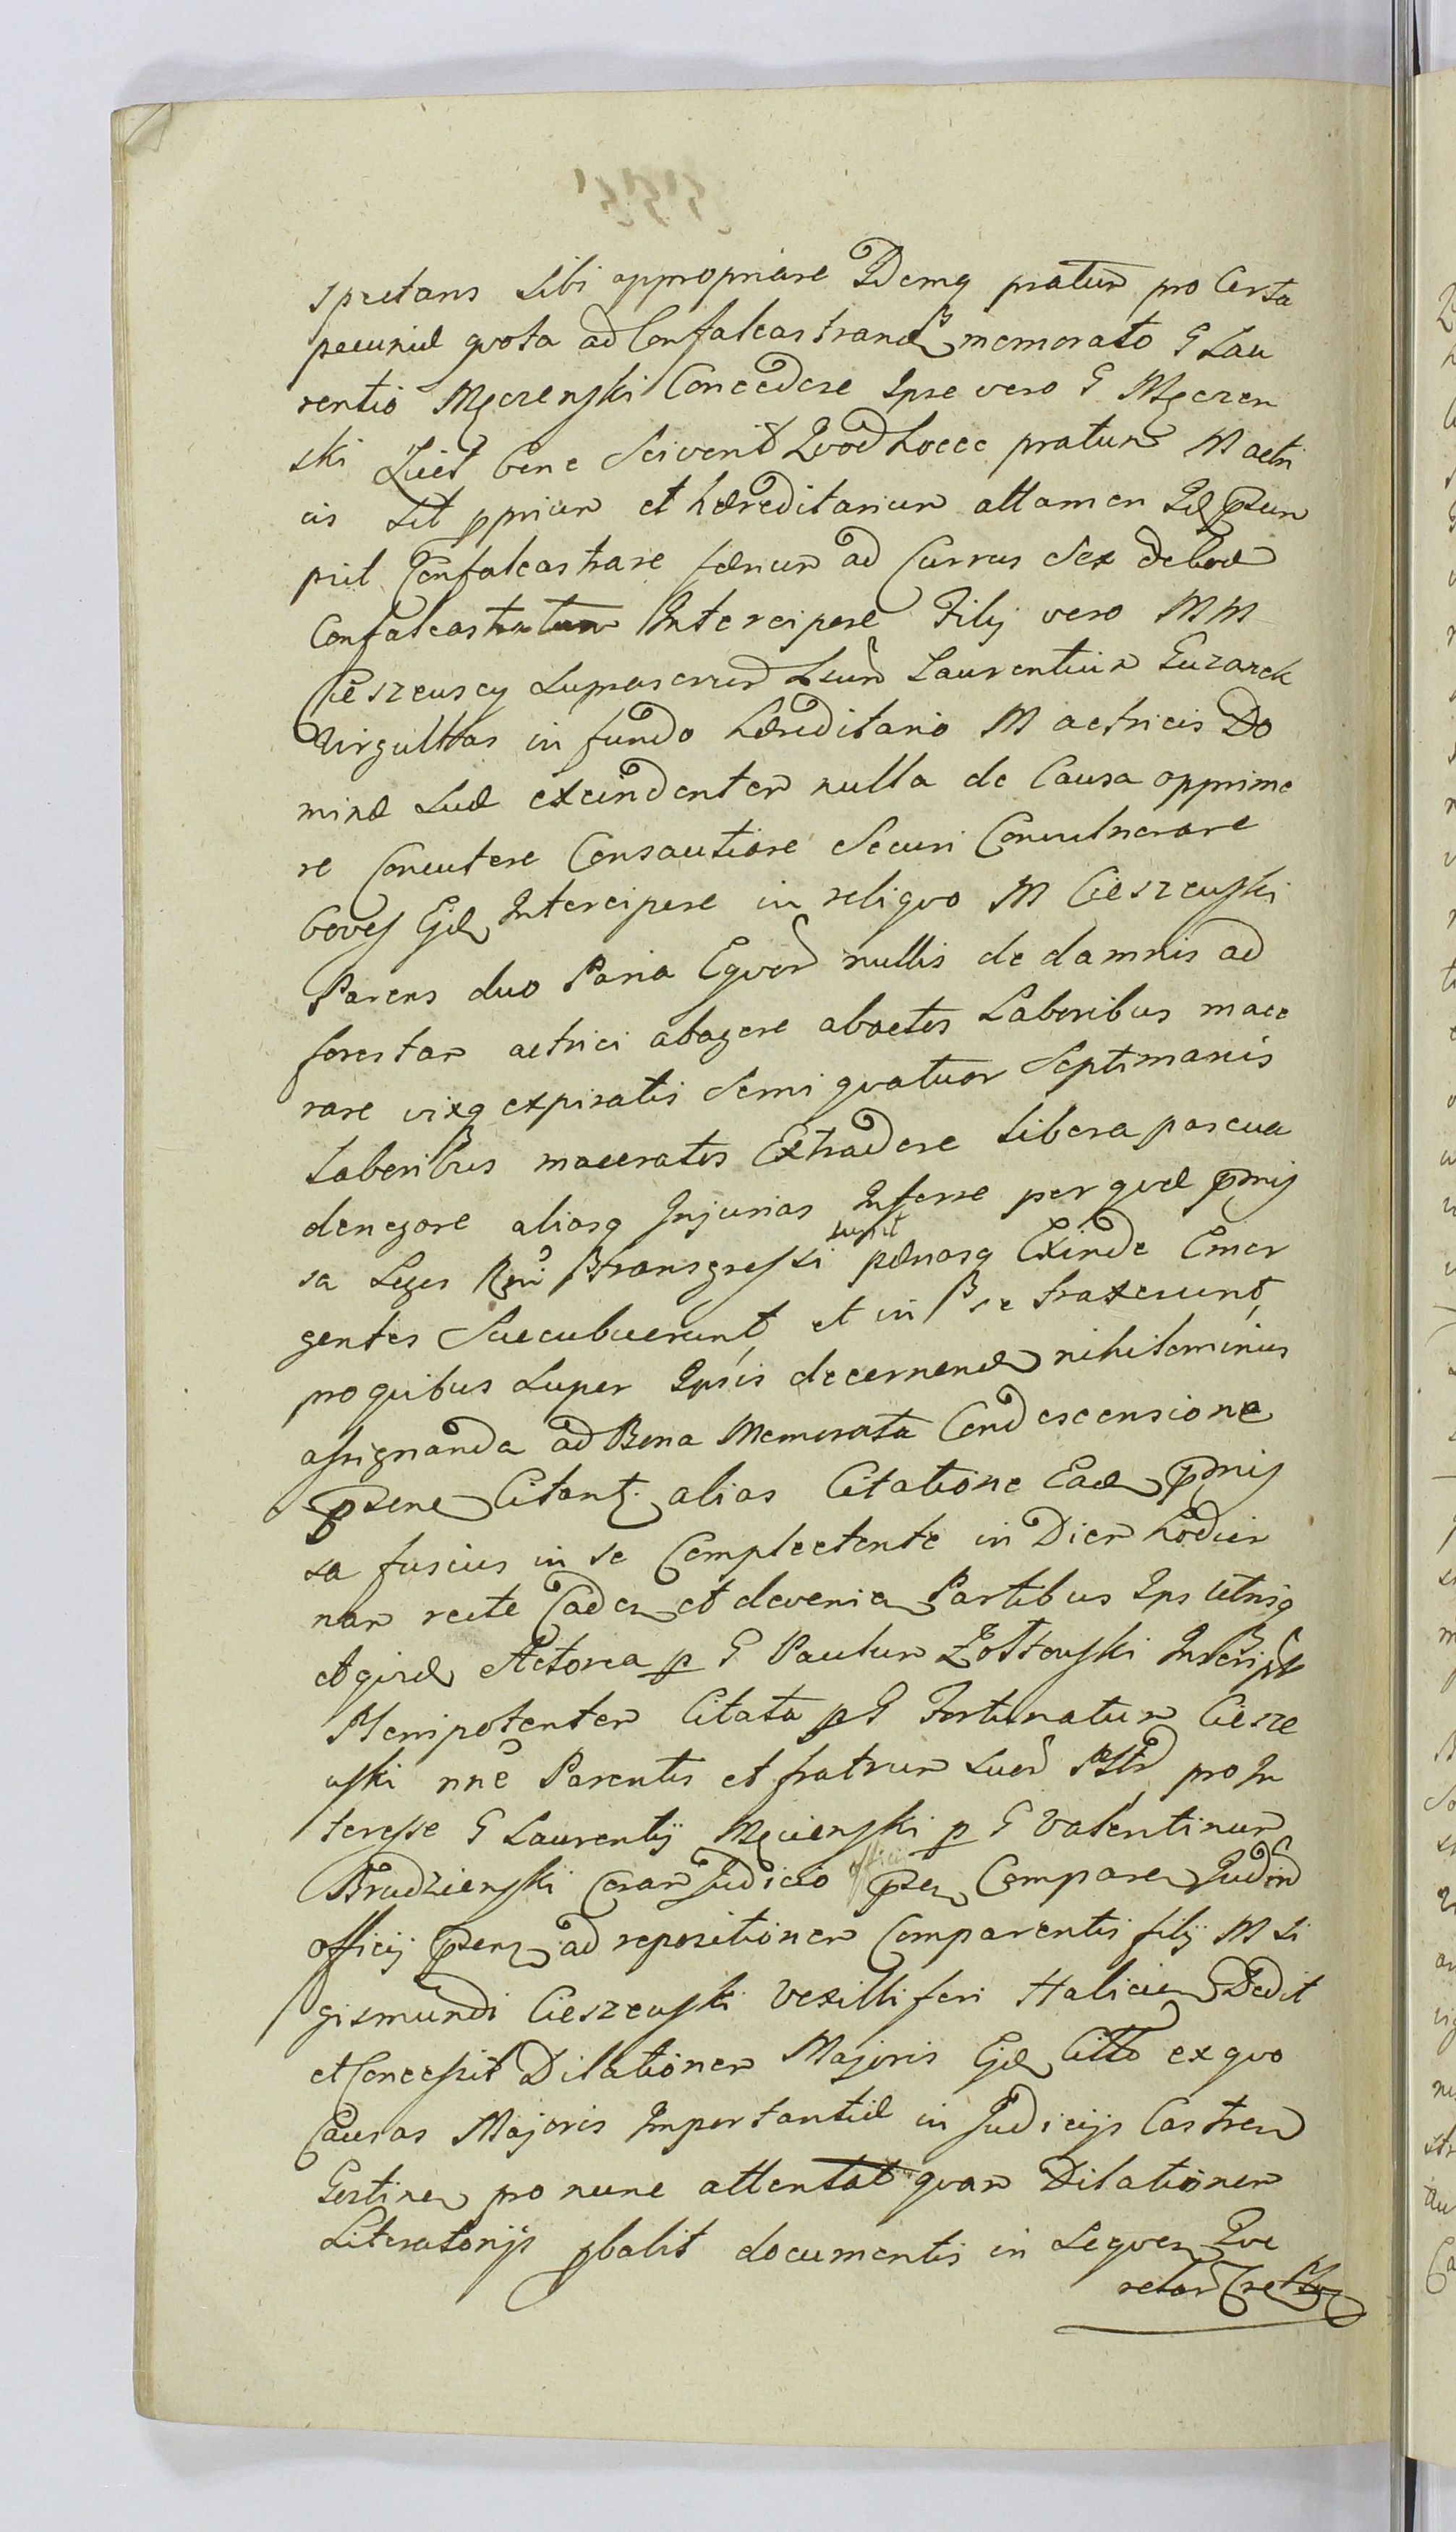 spectans sibi appropriare Idemq pratum pro Certa
pecuniæ quota ad Confalcastrand memorato G Lau
rentio Męczenski Concedere Ipse vero G Męczen
ski Licet bene Sciverit Quod hocce pratum M actri
cis sit pprium et hæreditarium attamen Id præsum
psit Confalcastrare fænum ad Currus Sex
Confalcastratum Intercipere Filij vero MM
Cieszewscy Laurentium Guzarek
Virgultas in fundo hæreditario M actricis Do
minæ suæ excindentem nulla de Causa opprime
re Concutere Consautiare Securi Convulnerare
boves Ejd Intercipere in reliquo M Cieszewski
Parens duo Paria Equor nullis de damnis ad
forestam actrici abagere abactos Laboribus mace
rare vixq expiratis Semi quatuor Septimanis
Laboribus maceratos Extradere Libera pascua
denegare aliasq Injurias Inferre per quæ pmis
sa Leges Rni transgressi sunt pænasq Exinde Emer
gentes Succubuerunt, et in se traxerunt,
pro quibus super Ipsis decernend nihilominus
assignanda ad Bona Memorata Condescensione
psene Citant. alias Citatione Ead pmis
sa fusius in se Complectente in Diem hodier
nam recte Caden et devenien Partibus Ips utrisq
Actorea p G Paulum Żołtowski Inscript
Plenipotentem Citata p G Fortunatum Ciesze
wski nne Parentis et fratrum suor pro In
teresse G Laurentij Męcienski p G Valentinum
Brudzienski Coram Judicio officii psen Comparen Judm
officij psens ad repositionem Comparentis filij M Si
gismundi Cieszewski Vexilliferi Halicien Dedit
et Concessit Dilationem Majoris Ejd Citto ex quo
Causas Majoris Importantiæ in Judicijs Castren
Gostinen pro nunc attentat quam Dilationem
Literatorijs pbabit documentis in sequen Que
relar